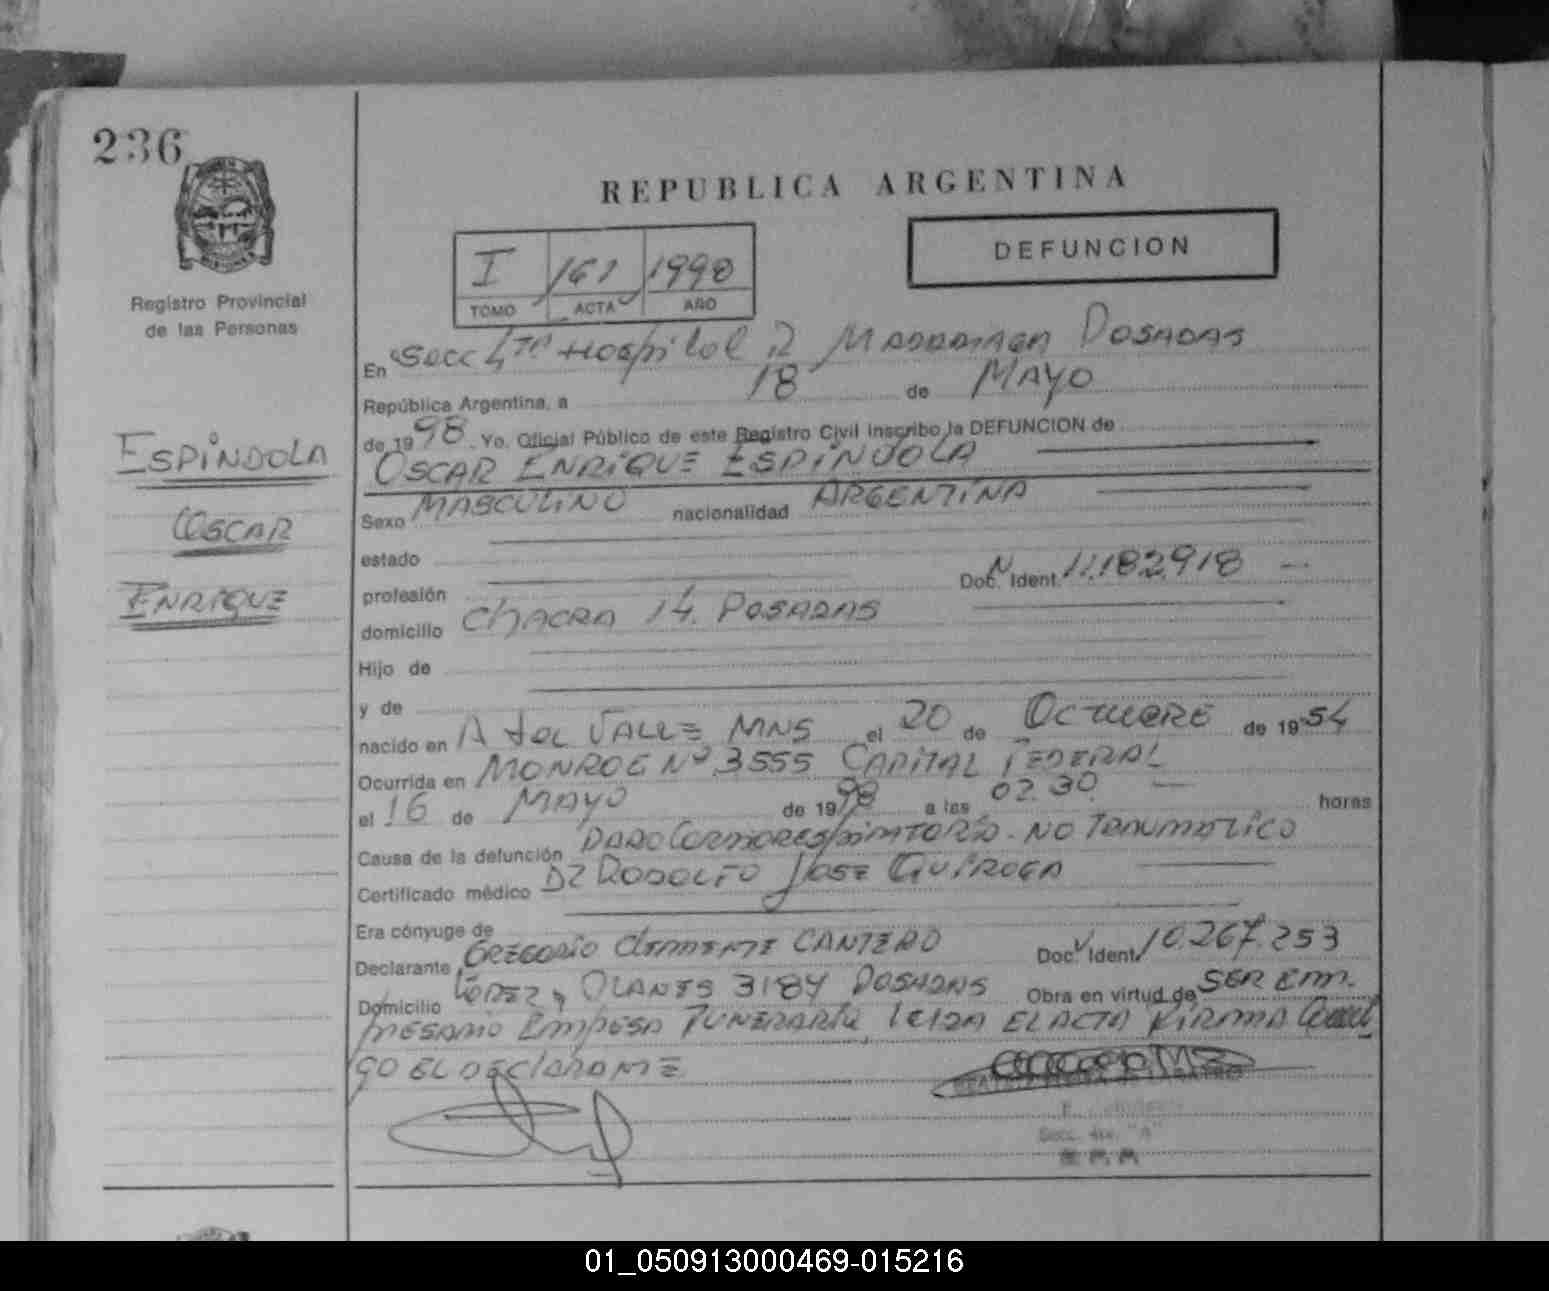 236
REPUBLICA ARGENTINA
Registro Provincial
de las Personas
I 161 1998
TOMO ACTA AÑO
DEFUNCION
En Secc 4ta Hospital R Madariaga Posadas
República Argentina, a 18 de MAYO
de 1998. Yo, Oficial Público de este Registro Civil inscribo la DEFUNCION de
ESPINDOLA
OSCAR
ENRIQUE
OSCAR ENRIQUE ESPINDOLA
Sexo MASCULINO nacionalidad ARGENTINA
estado
profesión Doc. Ident. N 11.182.918
domicilio CHACRA 14. POSADAS
Hijo de
y de
nacido en A del VALLE MNS el 20 de OCTUBRE de 1954
Ocurrida en MONROE Nº 3555 CAPITAL FEDERAL
el 16 de MAYO de 1998 a las 02.30 horas
Causa de la defunción PARO CARDIORESPIRATORIO. NO TRAUMATICO
Certificado médico DR RODOLFO JOSE QUIROGA
Era cónyuge de
Declarante GREGORIO CLEMENTE CANTERO Doc. Ident. 10.267.253
Domicilio LOPEZ y PLANES 3184 POSADAS Obra en virtud de SER EM.
PRESARIO EMPRESA FUNERARIA, LEIDA EL ACTA FIRMA CONMI
GO EL DECLARANTE
Secc. 4ta. "A"
01_050913000469-015216